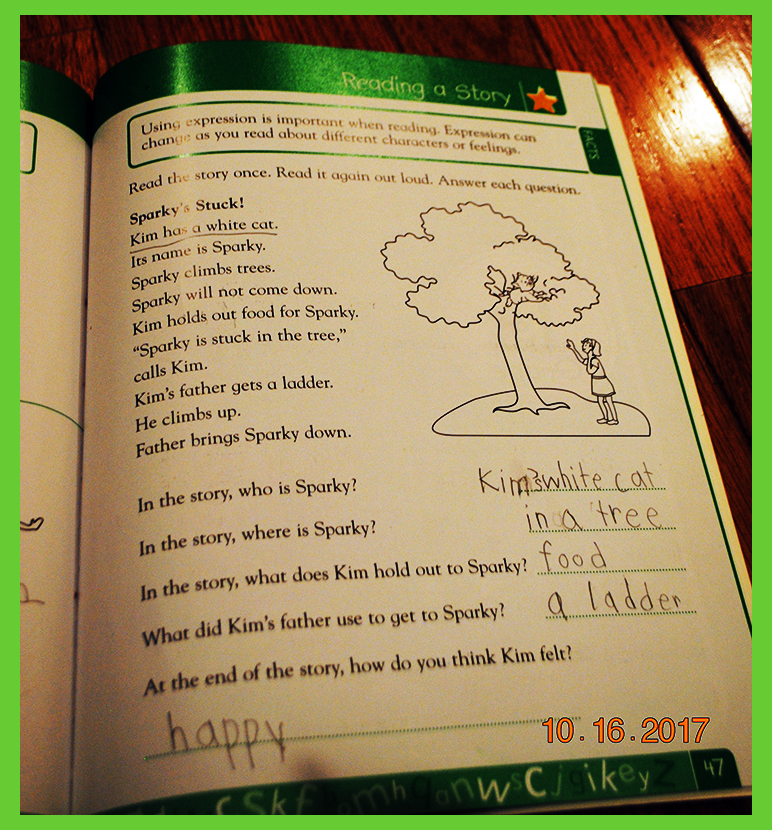 Reading a Story
Using expression is important when reading. Expression can
change as you read about different characters or feelings.
FACTS
Read the story once. Read it again out loud. Answer each question.
Sparky's Stuck!
Kim has a white cat.
Its name is Sparky.
Sparky climbs trees.
Sparky will not come down.
Kim holds out food for Sparky.
“Sparky is stuck in the tree,”
calls Kim.
Kim's father gets a ladder.
He climbs up.
Father brings Sparky down.
In the story, who is Sparky? Kim's white cat
In the story, where is Sparky? in a tree
In the story, what does Kim hold out to Sparky? food
What did Kim's father use to get to Sparky? a ladder
At the end of the story, how do you think Kim felt?
happy
10.16.2017
47